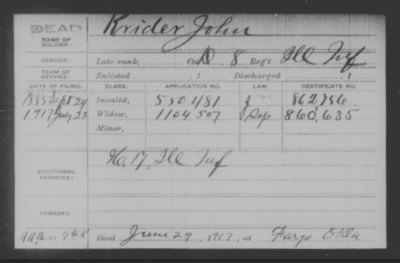 DEAD Krider John
NAME OF SOLDIER:
SERVICE: Late rank, Co. D, 8 Reg't Ill Inf
TERM OF SERVICE: Enlisted , 1 Discharged , 1
DATE OF FILING. CLASS. APPLICATION NO. LAW. CERTIFICATE NO.
1885 Sept 29 Invalid, 550181 862,756.
1917 July 23 Widow, 1104507 860,635
Minor,
ADDITIONAL SERVICES: 17, Ill Inf
REMARKS:
Died June 29, 1917, at Fargo Okla